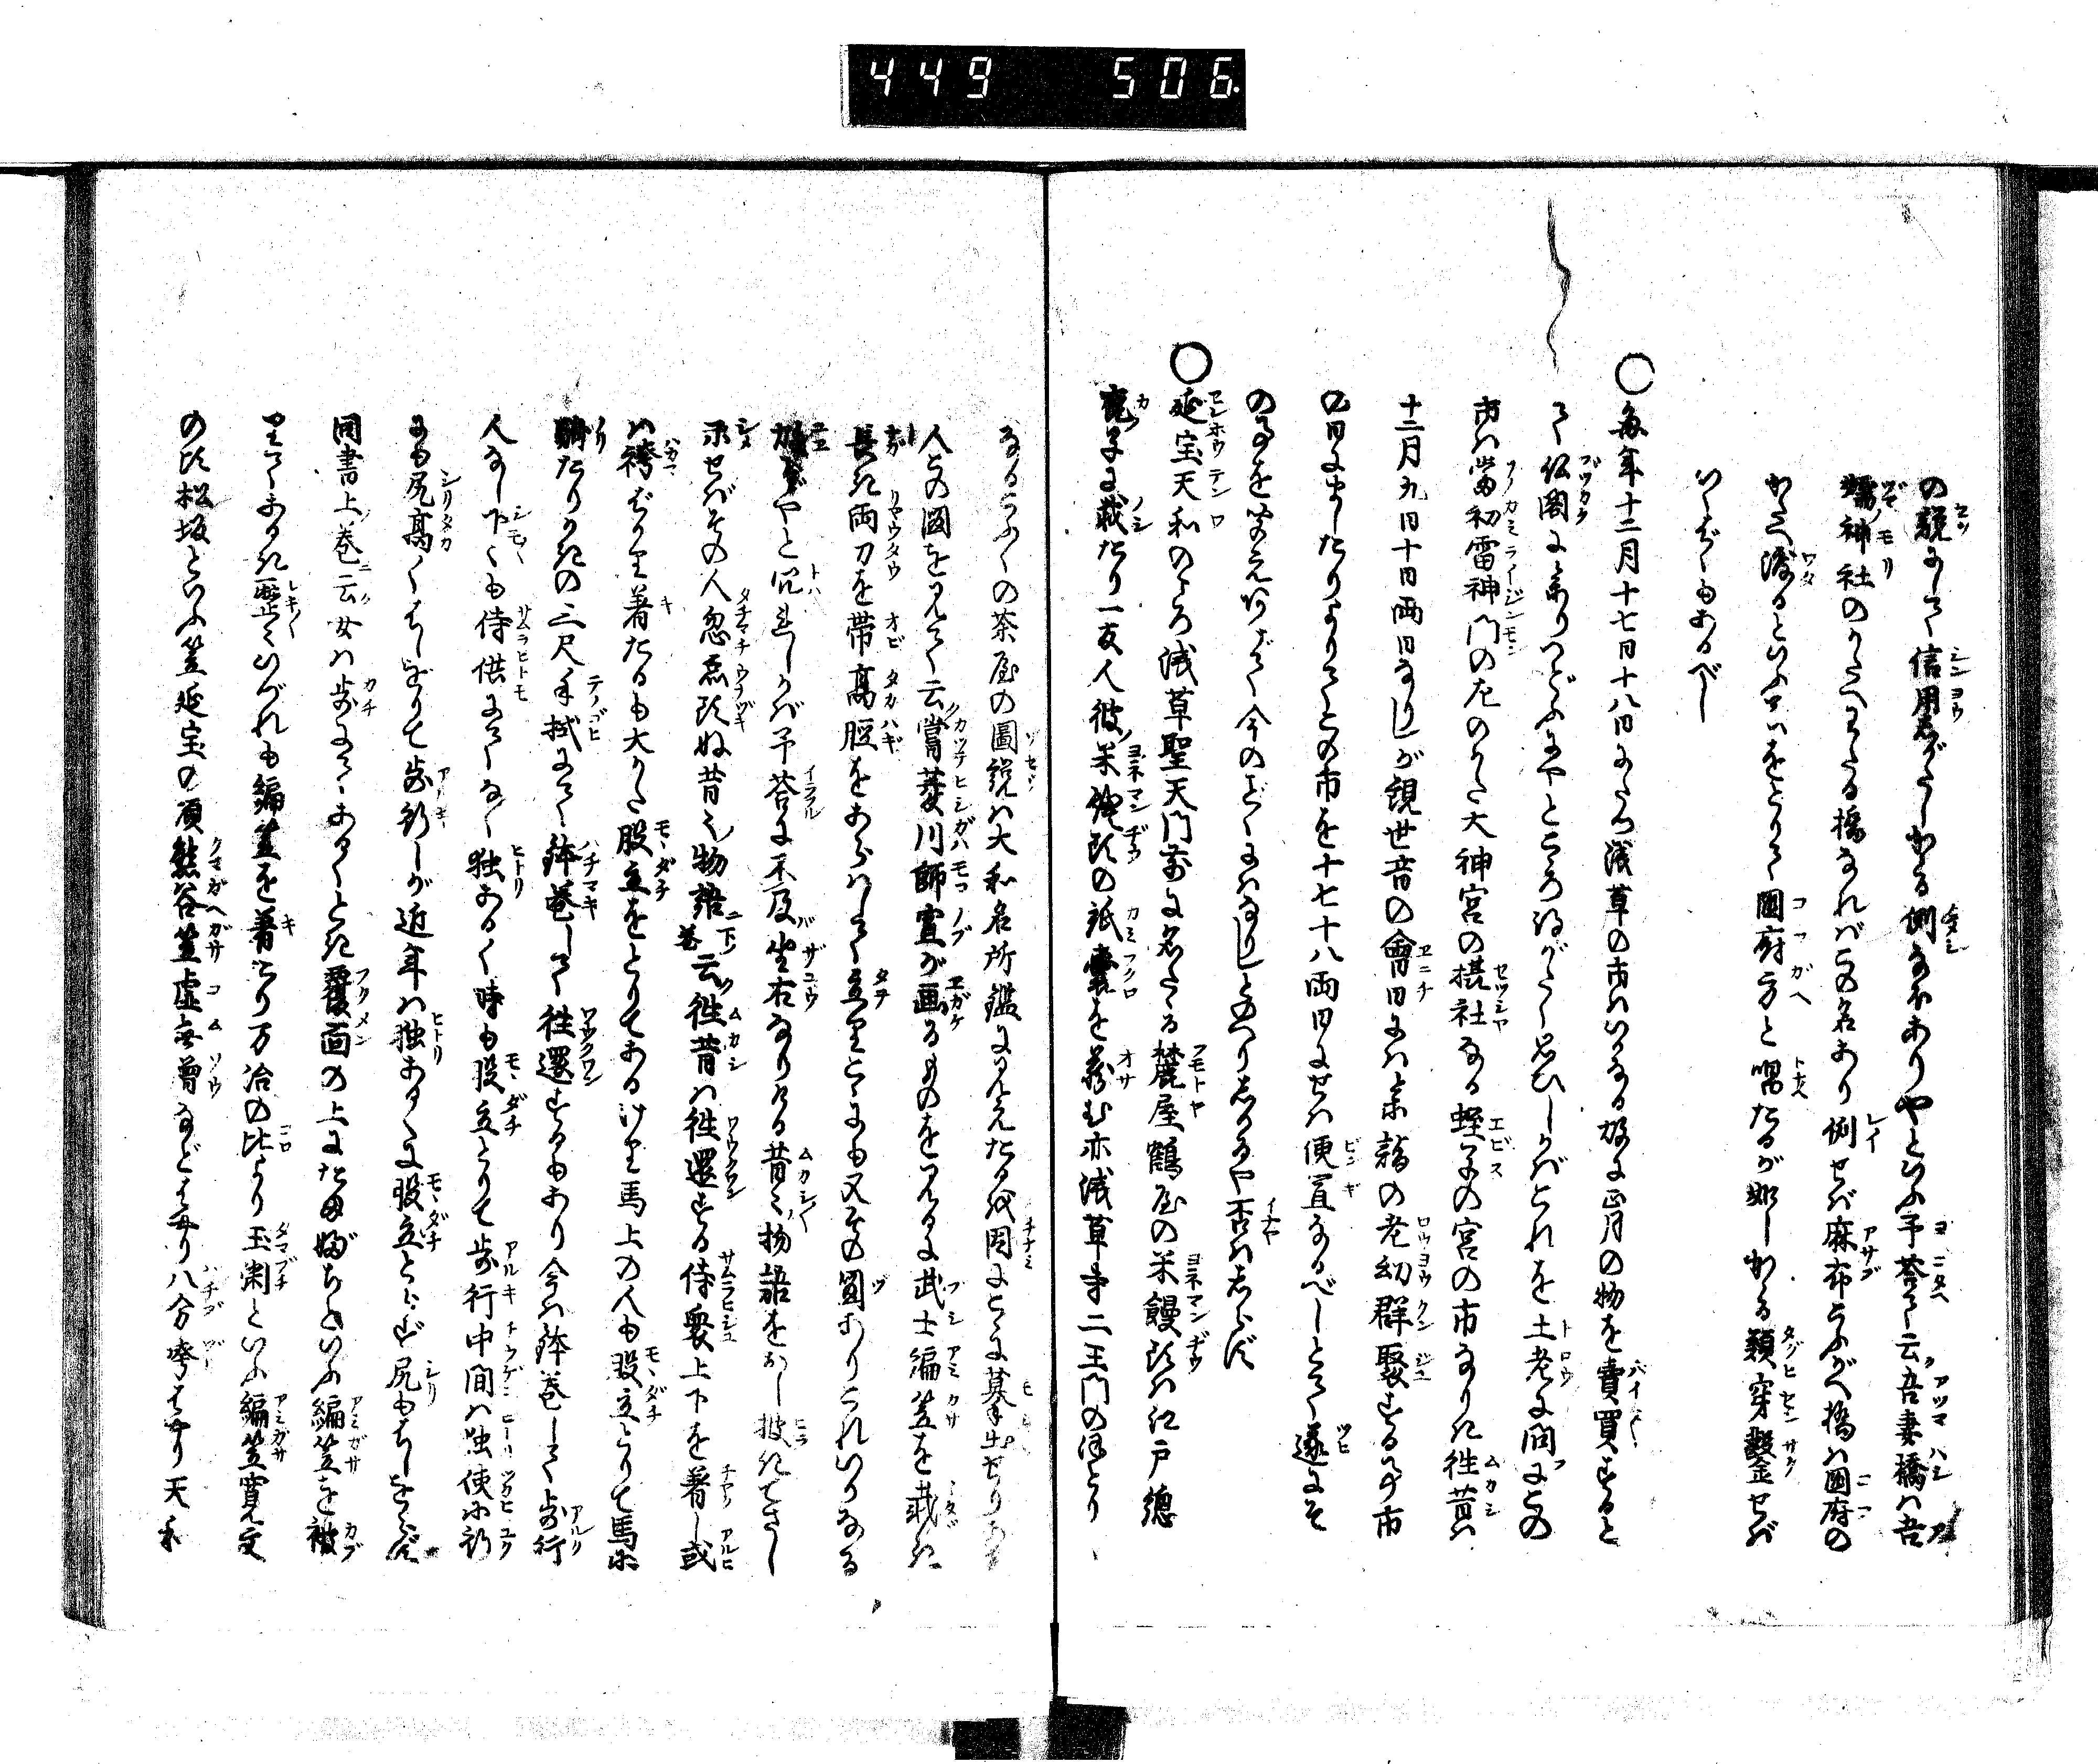 449 506
の説にして信用しがたしかゝる例なほありやといふ予答て云吾妻橋ハ吾
嬬神社のかたへわたる橋なれバこの名あり例せバ麻布こふがへ橋ハ国府の
かたへ渡るといふ口いをとりて国府方と唱たるが如しかゝる類穿鑿せバ
いくばくもあるべし
○毎年十二月十七日十八日にたつ浅草の市ハいかなる故に正月の物を売買するとて
仏閣に参りつどふにやところ得がたく思ひしかバこれを土老に問ふにこの
市ハ当初雷神門の左のかた大神宮の摂社なる蛭子の宮の市なりき往昔ハ
十二月九日十日両日なりしが観世音の会日にハ参詣の老幼群聚する事市
の日にましたりよりてこの市を十七十八両日にせバ便宜なるべしとて遂にそ
の事を聞えあげて今のごとくにハなりしといへりしかるや否ハしらず
○延宝天和のころ浅草聖天門前に名たゝる麓屋鶴屋の米饅頭ハ江戸総
鹿子に載たり一友人彼米饅頭の紙嚢を蔵む亦浅草寺二王門のほとり
なるらふくの茶屋の図説ハ大和名所鑑に見えたる故因にこゝに摹し出せりある
人この図を見て云嘗菱川師宣が画るものを見るに武士編笠を戴き
長き両刀を帯高脛をあらハして立るところにも又その図ありこれいかなる
故ぞやと問れしかバ予答に不及坐右なりける昔々物語をかし披きてさし
示せバその人忽焉頷ぬ昔々物語下ノ巻ニ云往昔ハ往還する侍衆上下を着し或
ハ袴ばかり着たるも大かた股立をとりてあるけり馬上の人も股立とりて馬に
騎たりかたの三尺手拭にて鉢巻して往還するもあり今ハ鉢巻して歩行
人なし下々も侍供にてなく独あるく時も股立とりて歩行中間ハ独使に行
にも尻高くはしをりて歩行しが近年ハ独あるくに股立とらず尻もはしをらず
同書上ノ巻ニ云女ハ歩にてあるくとき覆面の上にためぬりといふ編笠を被
りてあるき歴々いづれも編笠を着たり万治の比より玉渕といふ編笠寛文
の比松坂といふ笠延宝の頃熊谷笠虚無僧などはやり八分笠はやり天和